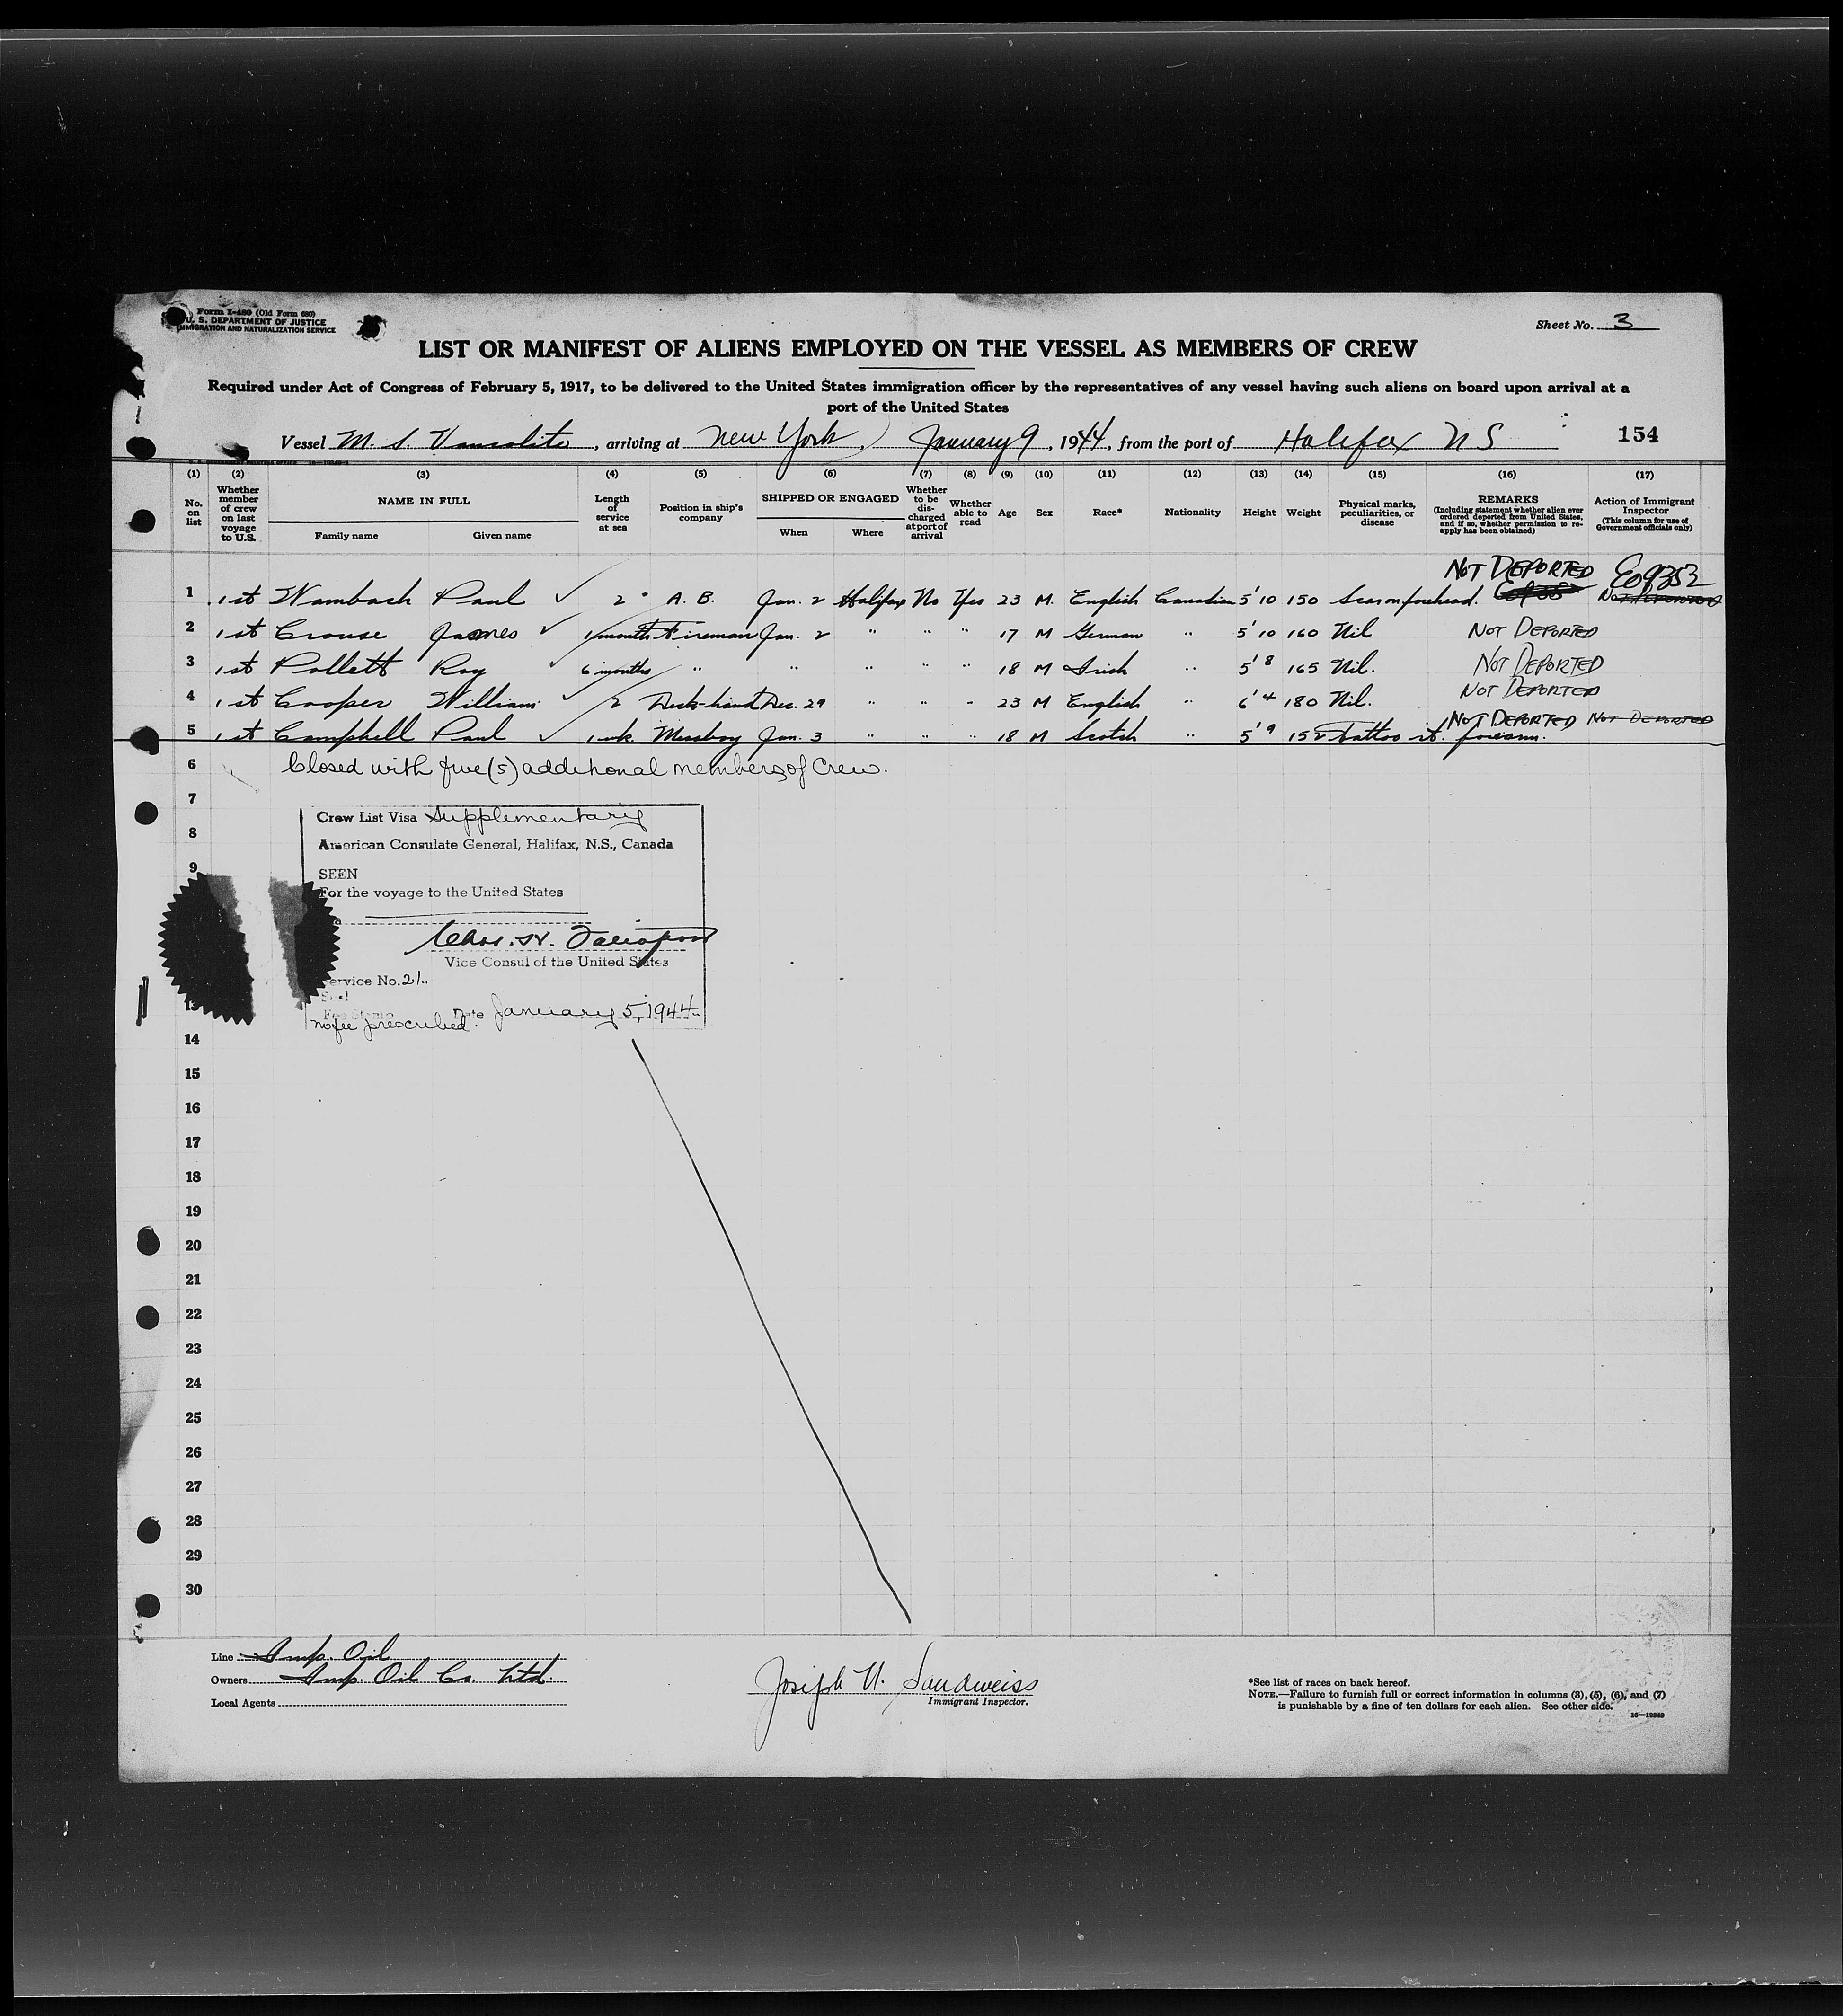 Form I-480 (Old Form 680)
U. S. DEPARTMENT OF JUSTICE
IMMIGRATION AND NATURALIZATION SERVICE
Sheet No. 3
LIST OR MANIFEST OF ALIENS EMPLOYED ON THE VESSEL AS MEMBERS OF CREW
Required under Act of Congress of February 5, 1917, to be delivered to the United States immigration officer by the representatives of any vessel having such aliens on board upon arrival at a
port of the United States
Vessel M. S. Vancolite, arriving at New York, January 9, 1944, from the port of Halifax N S 154
(1) (2) (3) (4) (5) (6) (7) (8) (9) (10) (11) (12) (13) (14) (15) (16) (17)
No. on list
Whether member of crew on last voyage to U.S.
NAME IN FULL
Family name Given name
Length of service at sea
Position in ship's company
SHIPPED OR ENGAGED
When Where
Whether to be discharged at port of arrival
Whether able to read
Age
Sex
Race*
Nationality
Height
Weight
Physical marks, peculiarities, or disease
REMARKS
(Including statement whether alien ever ordered deported from United States, and if so, whether permission to re-apply has been obtained)
Action of Immigrant Inspector
(This column for use of Government officials only)
NOT DEPORTED Eo9352
1 1st Wambach Paul 2 A. B. Jan. 2 Halifax No Yes 23 M. English Canadian 5'10 150 Scar on forehead. NOT DEPORTED
2 1st Crouse James 1 month Fireman Jan. 2 " " " 17 M German " 5'10 160 Nil NOT DEPORTED
3 1st Pollett Roy 6 months " " " " " 18 M Irish " 5'8 165 Nil. NOT DEPORTED
4 1st Cooper William 2 Deck-hand Dec. 29 " " " 23 M English " 6'4 180 Nil. NOT DEPORTED
5 1st Campbell Paul 1 wk. Messboy Jan. 3 " " " 18 M Scotch " 5'9 152 Tattoo rt. forearm. NOT DEPORTED NOT DEPORTED
6 Closed with five (5) additional members of Crew.
7
Crew List Visa Supplementary
8
American Consulate General, Halifax, N.S., Canada
9
SEEN
For the voyage to the United States
Vice Consul of the United States
Service No. 21.
Seal
13
Fee Stamp Date January 5, 1944
no fee prescribed.
14
15
16
17
18
19
20
21
22
23
24
25
26
27
28
29
30
Line Imp. Oil
Owners Imp. Oil Co. Ltd.
Local Agents
Joseph H. Sandweiss
Immigrant Inspector.
*See list of races on back hereof.
NOTE.—Failure to furnish full or correct information in columns (3), (5), (6), and (7)
is punishable by a fine of ten dollars for each alien. See other side.
16—19349